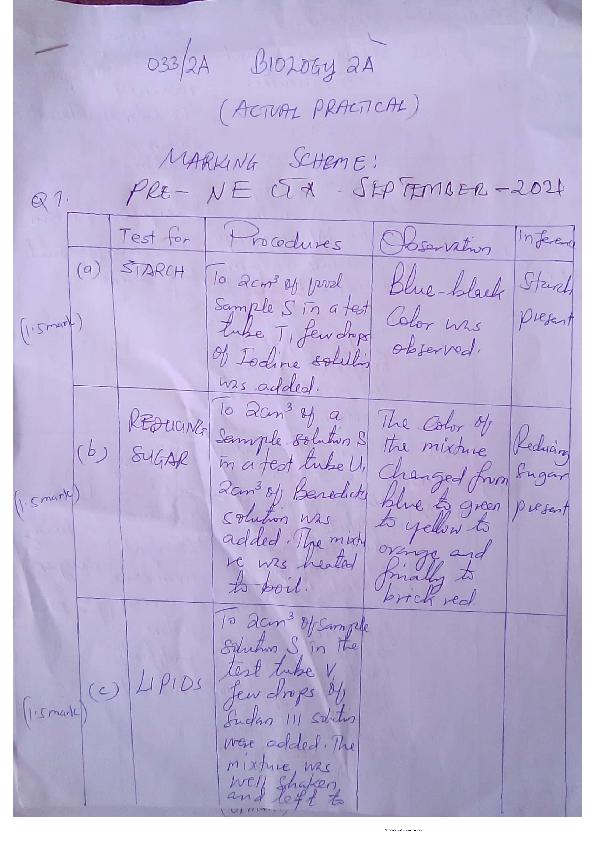 033/2A BIOLOGY 2A
(ACTUAL PRACTICAL)
MARKING SCHEME:
PRE-NECTA - SEPTEMBER-2021
Q1.
Test for
Procedures
Observation
Inferenc
(a)
(1.5mark)
STARCH
To 2cm³ of food
Sample S in a test
tube T, few drops
of Iodine solution
was added.
Blue-black
Color was
observed.
Starch
present
(b)
(1.5mark)
REDUCING
SUGAR
To 2cm³ of a
Sample solution S
in a test tube U,
2cm³ of Benedicts
solution was
added. The mixtu
re was heated
to boil.
The Color of
the mixture
Changed from
blue to green
to yellow to
orange and
finally to
brick red
Reducing
Sugar
present
(c)
(1.5mark)
LIPIDS
To 2cm³ of sample
solution S in the
test tube V,
few drops of
Sudan III solution
were added. The
mixture was
well shaken
and left to